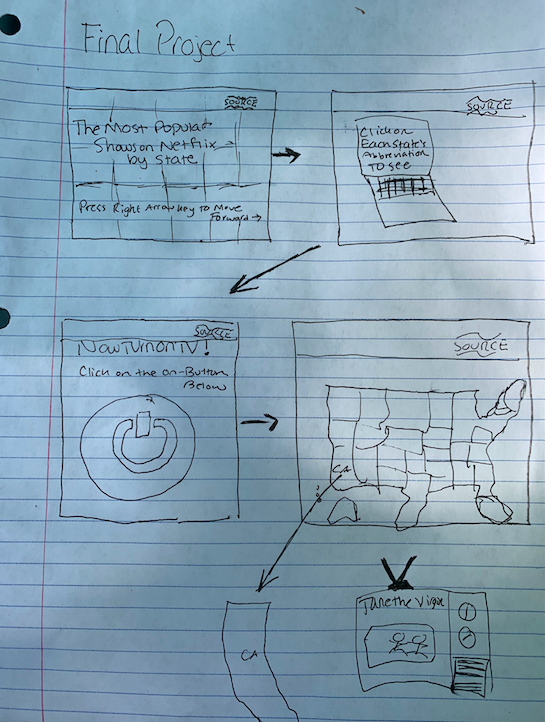 Final Project
SOURCE
The Most Popular
Shows on Netflix
by State
Press Right Arrow key to Move
Forward →
SOURCE
Click on
Each State's
Abbreviation
To See
SOURCE
Now Turn on TV!
Click on the on-Button
Below
SOURCE
CA
CA
Jane the Virgin
1
2